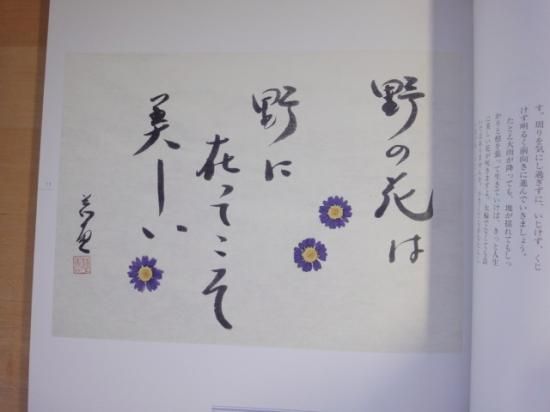 野の花は
野に
在ってこそ
美しい
す。周りを気にし過ぎずに、いじけず、くじ
けず明るく前向きに進んでいきましょう。
たとえ大雨が降っても、地が揺れてもしっ
かりと根を張って生きていけば、きっと人生
に美しい花が咲きますよ。